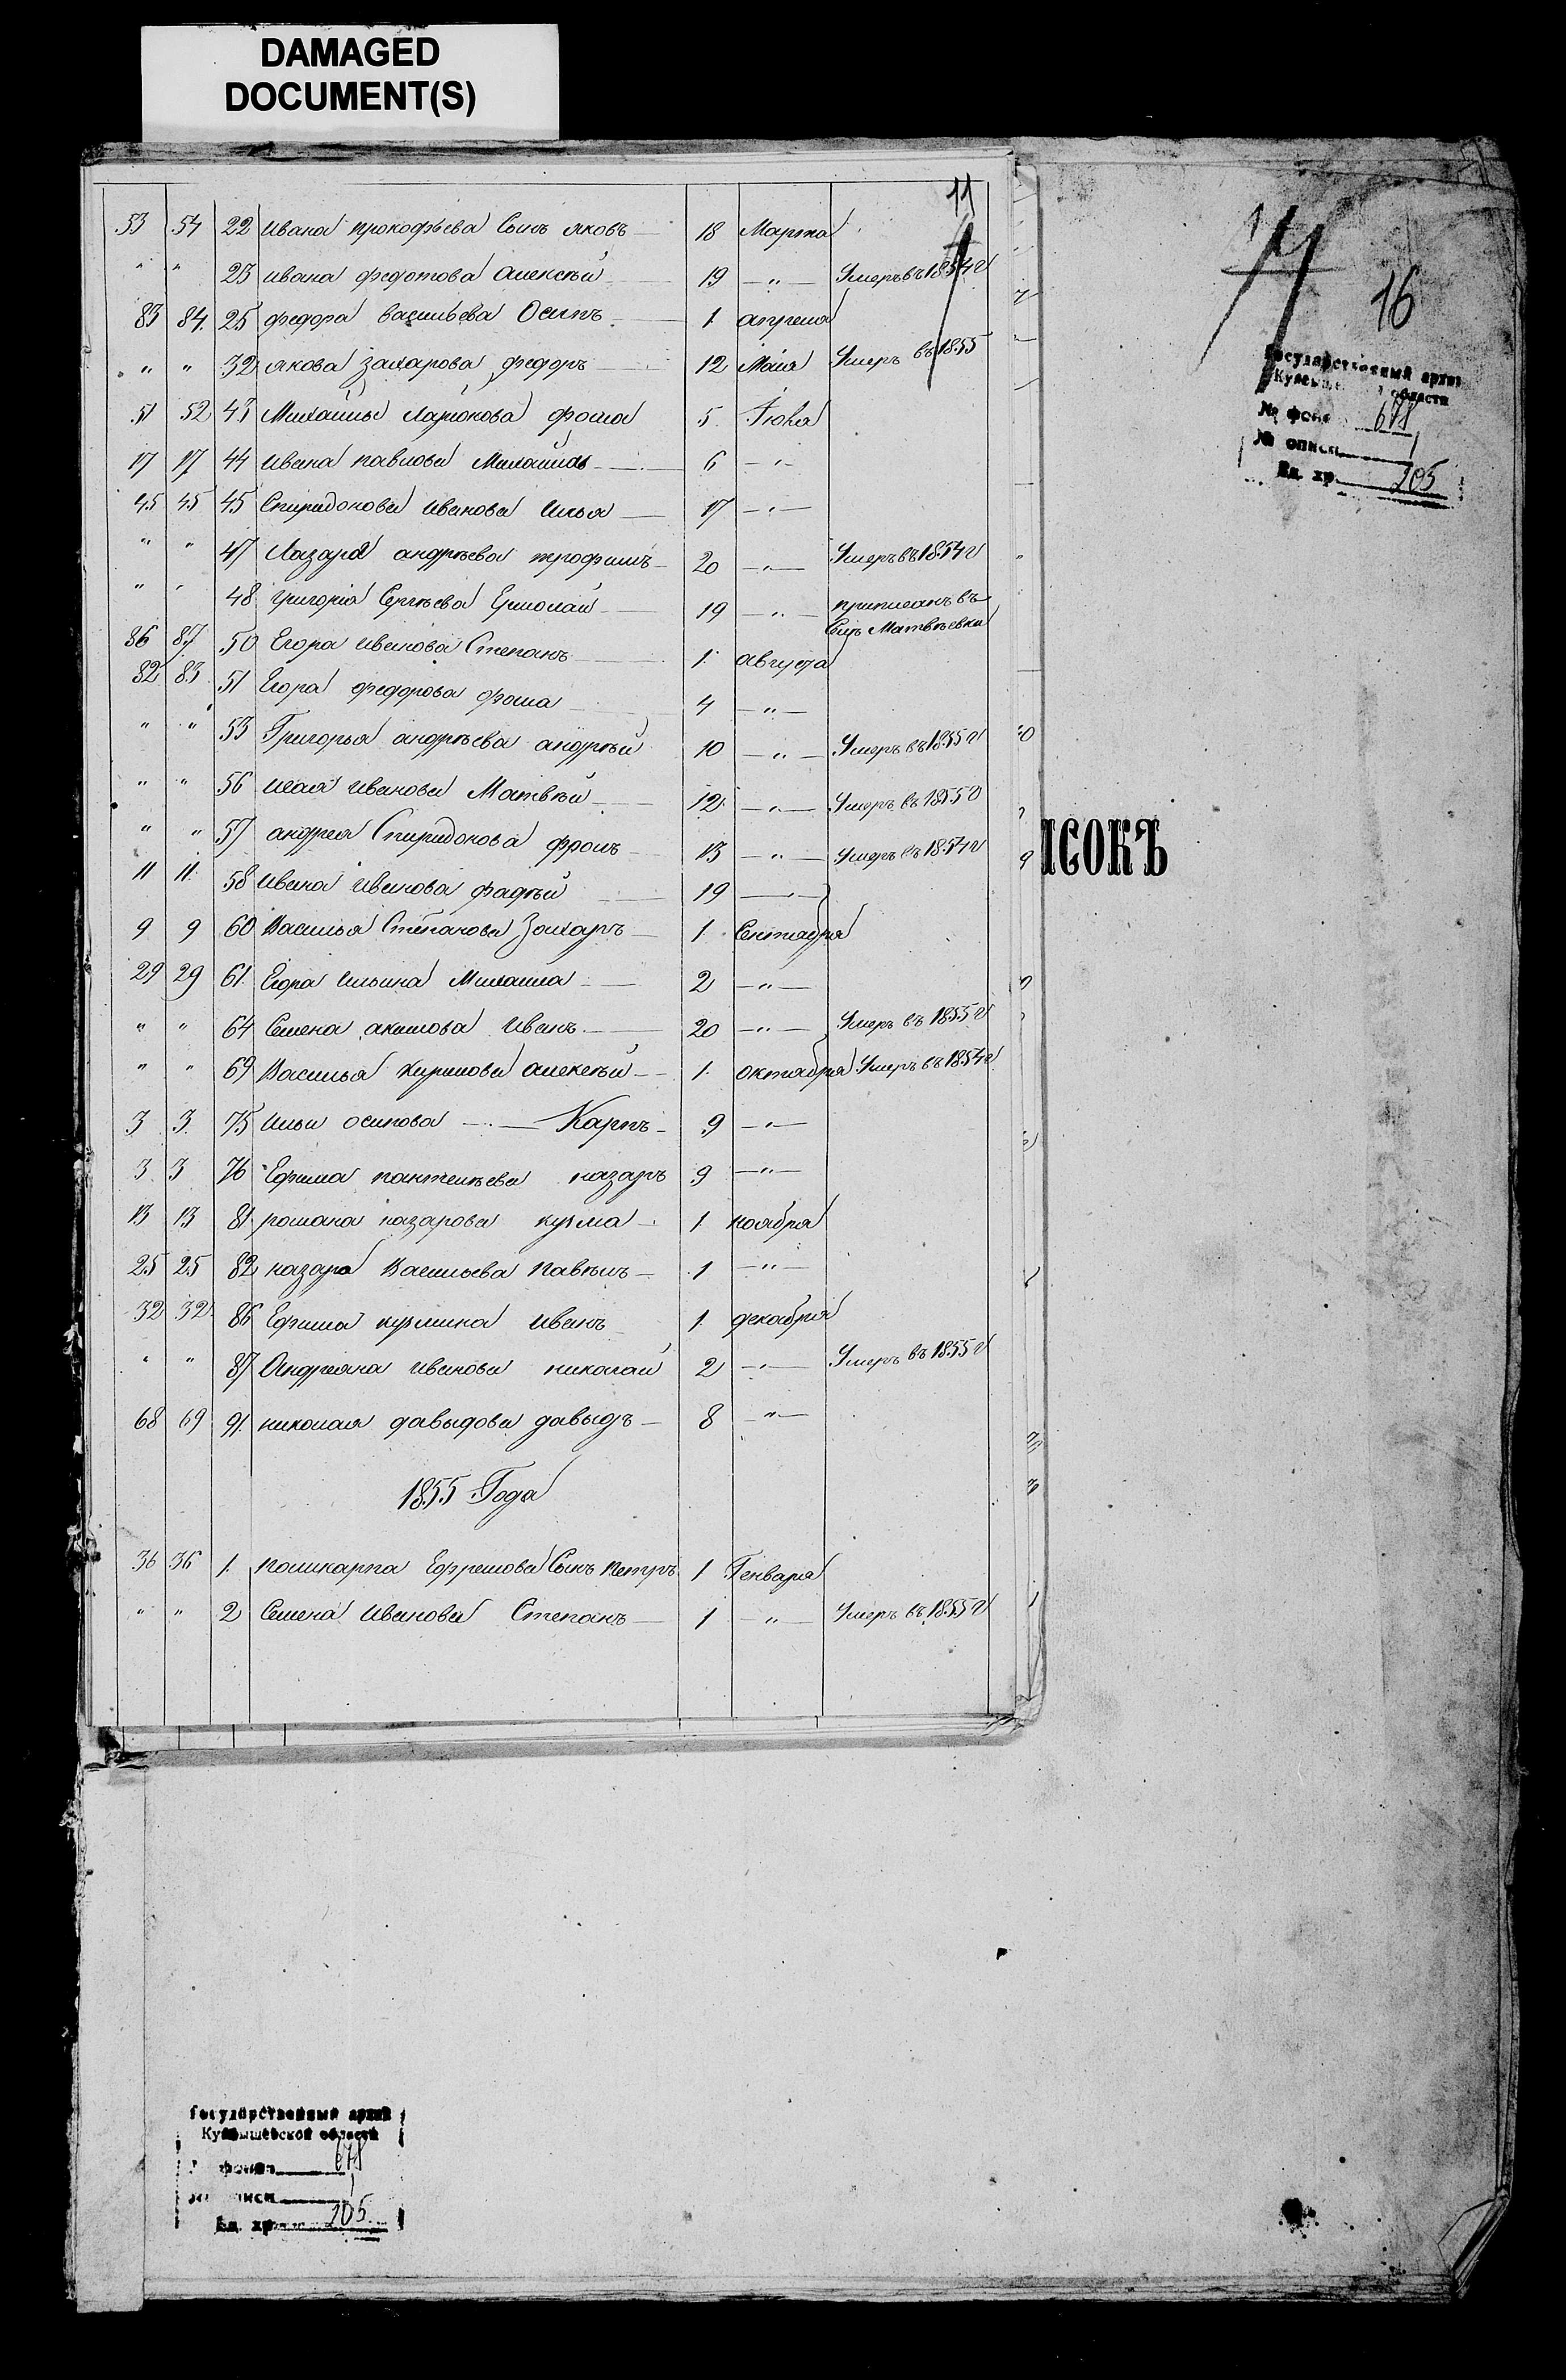 DAMAGED
DOCUMENT(S)
11
53 54 22 Ивана прокофьева Сынъ яковъ 18 Марта
" " 23 ивана федотова Алексѣй 19 — " — Умеръ въ 1854 г
83 84. 25 федора васильева Осипъ 1. апреля
" " 32 якова захарова федоръ 12 Маия Умеръ въ 1855
51 52 43 Михайлы Ларионова фома 5. Iюля
17 17 44 ивана павлова Михайла 6 — " —
45 45 45 Спиридонова иванова Илья 17 — " —
" " 47 Лазаря андрѣева трофимъ 20 — " — Умеръ въ 1854 г
" " 48 григорiя Сергѣева Ермолай 19 — " — приписанъ въ
Сел. Матвѣевки
86 87 50 Егора иванова Степанъ 1. августа
82 83 51 Егора федорова фома 4 — " —
" " 53 Григорья андрѣева андрѣй 10 — " — Умеръ въ 1855 г
" " 56 иванова Матвѣй 12. — " — Умеръ въ 1855 г
" " 57 андрея Спиридонова фролъ 13 — " — Умеръ въ 1854 г
11 11. 58 Ивана Иванова фадѣй 19 — " —
9 9 60 Василья Степанова Захаръ 1. Сентября
29 29 61. Егора Ильина Михаила 2 — " —
" " 64 Семена акимова Иванъ 20 — " — Умеръ въ 1855 г
" " 69 Василья Кирилова алексѣй 1. октября Умеръ въ 1854 г
3 3. 75 Ильи осипова — Карпъ 9 — " —
3 3 76 Ефима пантелѣева назаръ 9 — " —
13 13 81. романа назарова кузма 1. ноября
25 25 82 назара Васильева павѣлъ 1 — " —
32 32 86 Ефима кузмина иванъ 1. декабря
" " 87 Андреяна иванова николай 2 — " — Умеръ въ 1855 г
68 69 91. николая давыдова давыдъ 8 — " —
1855 Года
36 36 1. поликарпа Ефремова Сынъ петръ 1 Генваря
" " 2 Семена Иванова Степанъ 1 — " — Умеръ въ 1855 г
16
Государственный архив
Куйбышевской области
№ фонда 678
№ описи 1
Ед. хр. 205
ИСОКЪ
Государственный архив
Куйбышевской области
№ фонда 678
№ описи 1
Ед. хр. 205